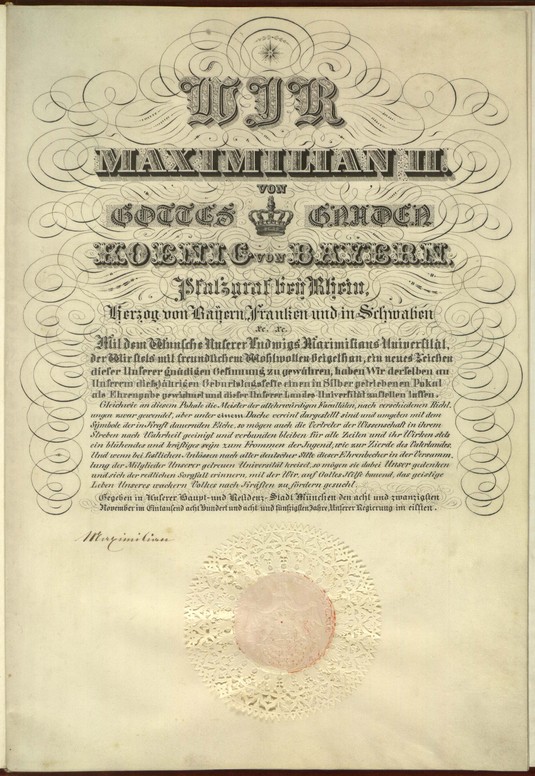 WIR
MAXIMILIAN II.
VON
GOTTES GNADEN
KOENIG VON BAYERN,
Pfalzgraf bey Rhein,
Herzog von Bayern, Franken und in Schwaben
&c. &c.
Mit dem Wunsche Unserer Ludwigs Maximilians Universität,
der Wir stets mit freundlichem Wohlwollen beigethan, ein neues Zeichen
dieser Unserer gnädigen Gesinnung zu gewähren, haben Wir derselben an
Unserem diesjährigen Geburtstagsfeste einen in Silber getriebenen Pokal
als Ehrengabe gewidmet und dieser Unserer Landes-Universität zustellen lassen.
Gleichwie an diesem Pokale die Meister der altehrwürdigen Facultäten, nach verschiedenen Richt-
ungen zwar gewendet, aber unter einem Dache vereint dargestellt sind und umgeben mit dem
Symbole der in Kraft dauernden Eiche, so mögen auch die Vertreter der Wissenschaft in ihrem
Streben nach Wahrheit geeinigt und verbunden bleiben für alle Zeiten und ihr Wirken stets
ein blühendes und kräftiges seyn zum Frommen der Jugend, wie zur Zierde des Vaterlandes.
Und wenn bei festlichen Anlässen nach alter deutscher Sitte dieser Ehrenbecher in der Versamm-
lung der Mitglieder Unserer getreuen Universität kreiset, so mögen sie dabei Unser gedenken
und sich der redlichen Sorgfalt erinnern, mit der Wir, auf Gottes Hilfe bauend, das geistige
Leben Unseres wackern Volkes nach Kräften zu fördern gesucht.
Gegeben in Unserer Haupt- und Residenz-Stadt München den acht und zwanzigsten
November im Eintausend acht Hundert und acht und fünfzigsten Jahre, Unserer Regierung im eilften.
Maximilian